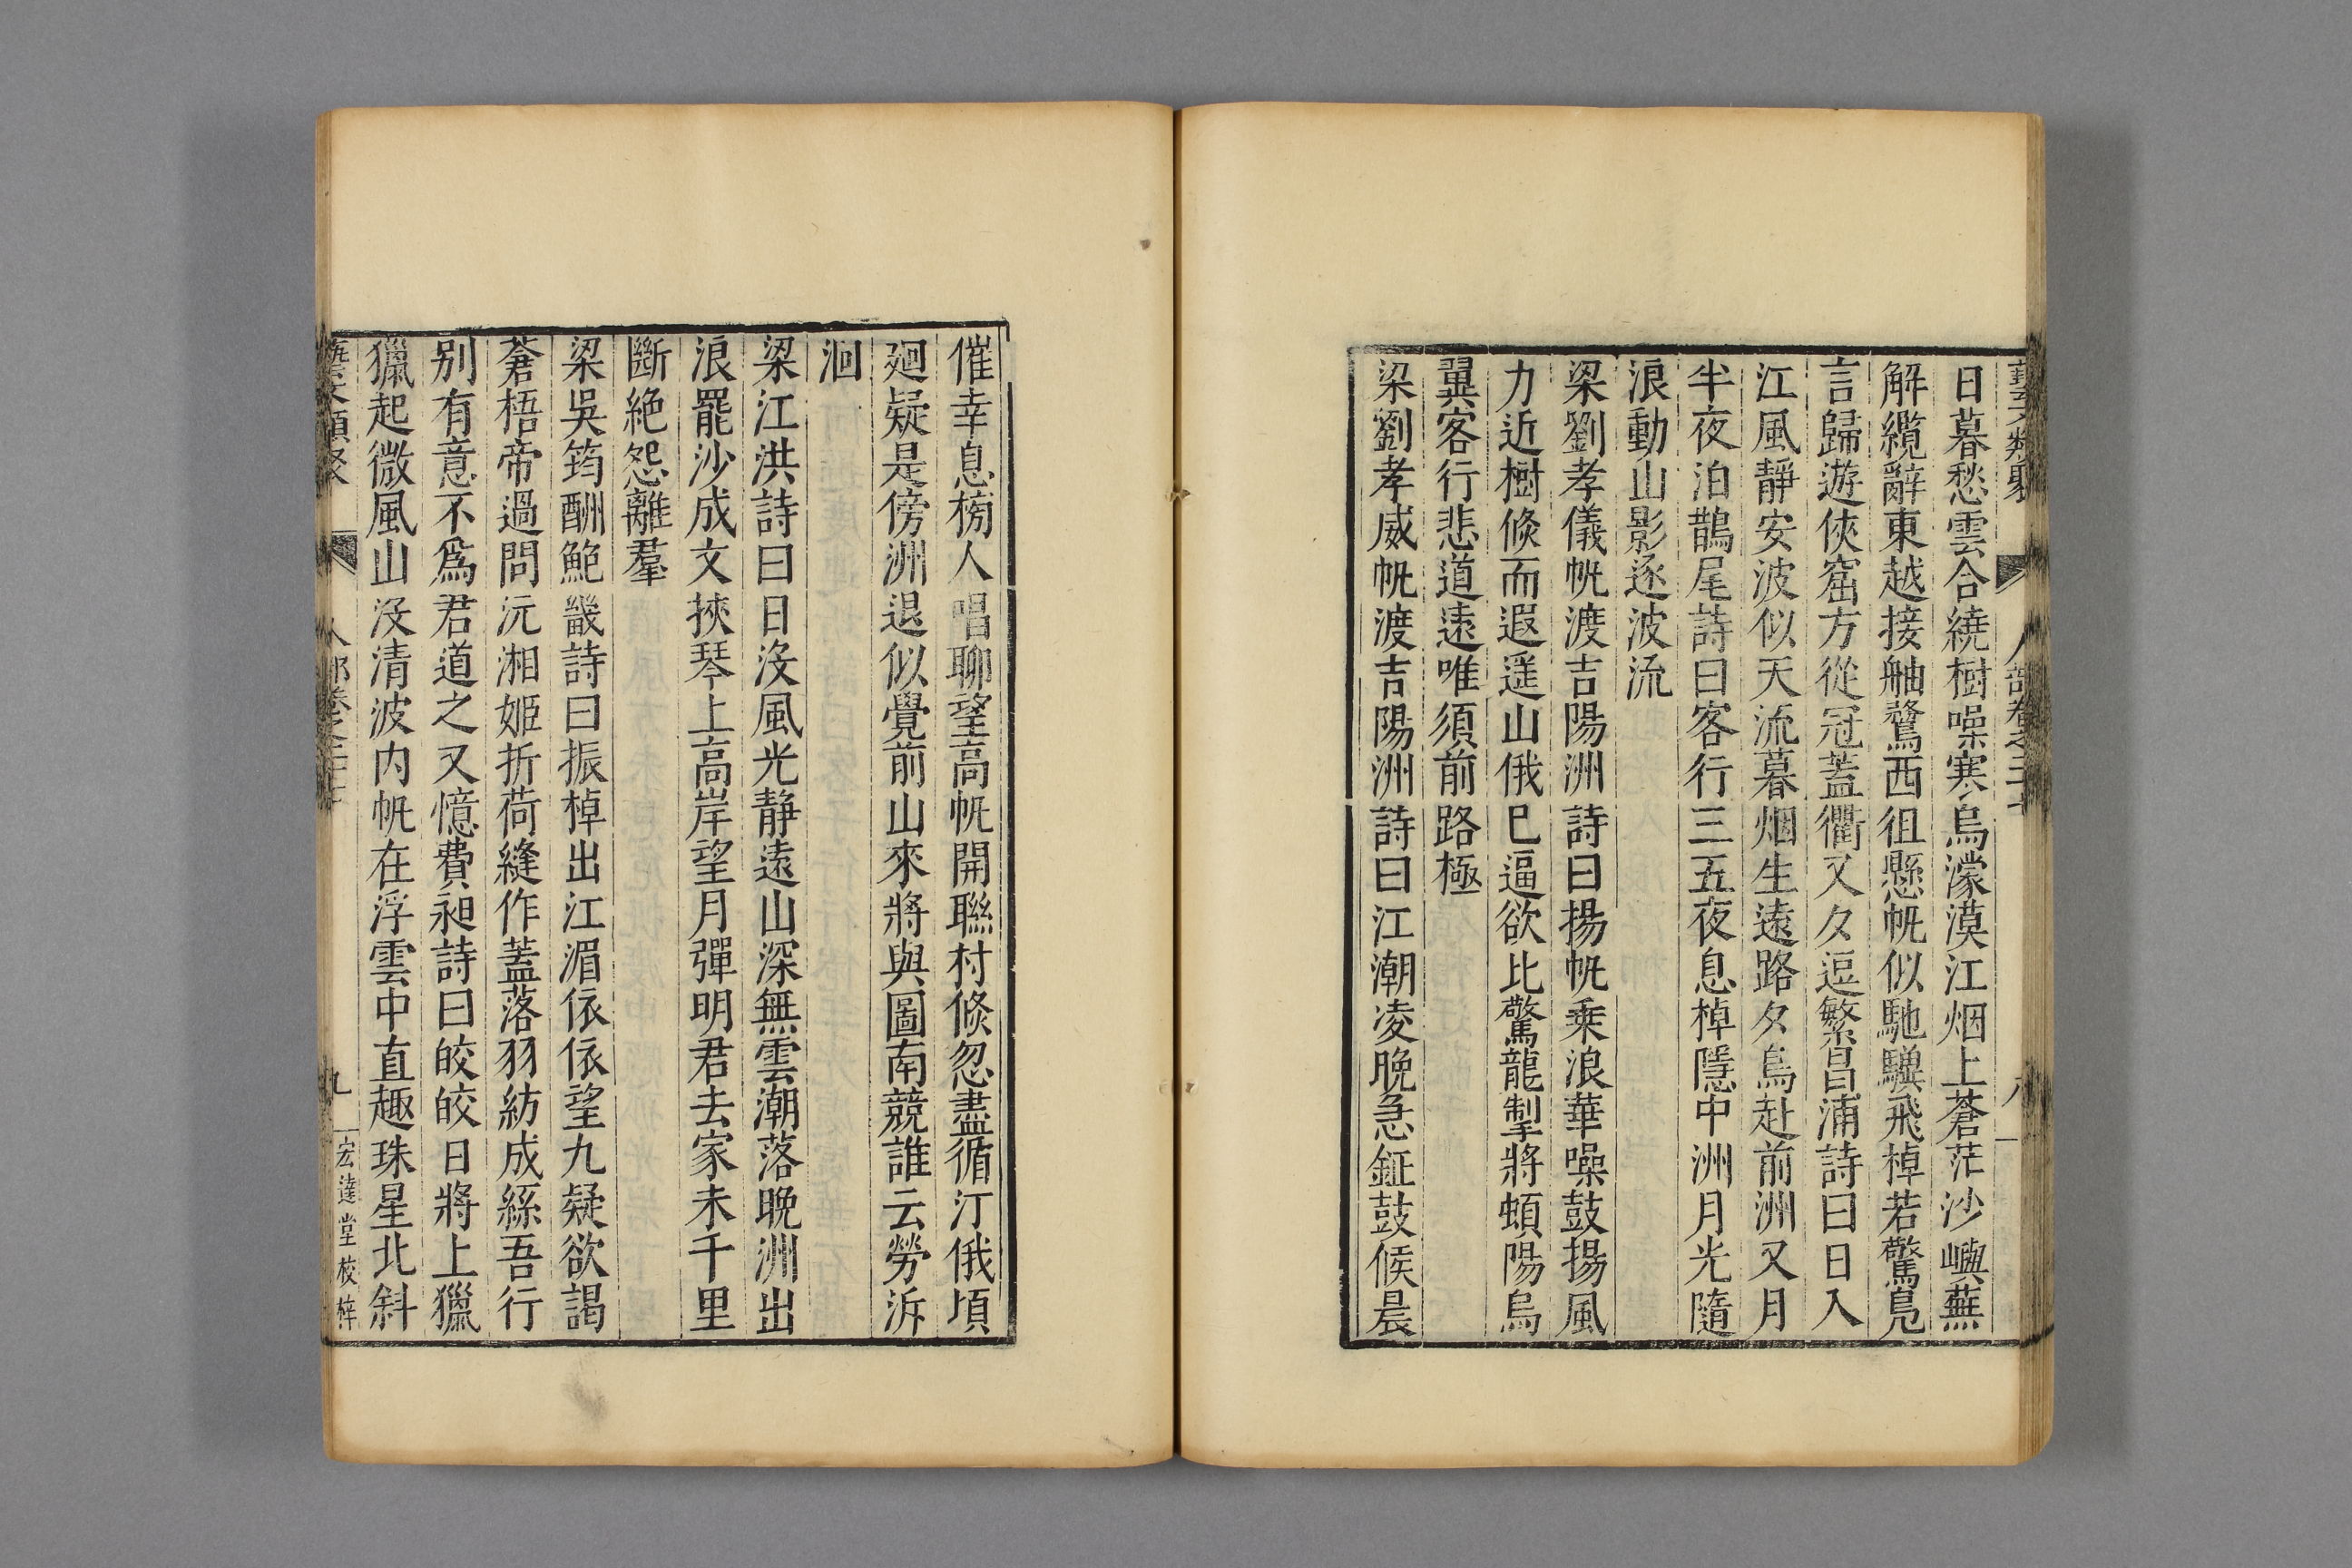 藝文類聚 人部卷之二十七 八
日暮愁雲合繞樹噪寒烏濛漠江烟上蒼茫沙嶼蕪
解纜辭東越接舳騖西徂懸帆似馳驥飛棹若驚鳬
言歸遊俠窟方從冠蓋衢又夕逗繁昌浦詩曰日入
江風靜安波似天流暮烟生遠路夕鳥赴前洲又月
半夜泊鵲尾詩曰客行三五夜息棹隱中洲月光隨
浪動山影逐波流
梁劉孝儀帆渡吉陽洲詩曰揚帆乗浪華噪鼓揚風
力近樹倐而遐遥山俄巳逼欲比驚龍掣將頓陽烏
翼客行悲道遠唯須前路極
梁劉孝威帆渡吉陽洲詩曰江潮凌晚急鉦鼓候晨
催幸息榜人唱聊望高帆開聯村倐忽盡循汀俄頃
廻疑是傍洲退似覺前山來將與圖南競誰云勞泝
洄
梁江洪詩曰日沒風光靜遠山深無雲潮落晚洲出
浪罷沙成文挾琴上高岸望月彈明君去家未千里
斷絶怨離羣
梁吳筠酬鮑畿詩曰振棹出江湄依依望九疑欲謁
蒼梧帝過問沅湘姬折荷縫作蓋落羽紡成絲吾行
别有意不爲君道之又憶費昶詩曰皎皎日將上獵
獵起微風山沒清波内帆在浮雲中直趣珠星北斜
藝文類聚 人部卷之二十七 九 宏達堂校梓